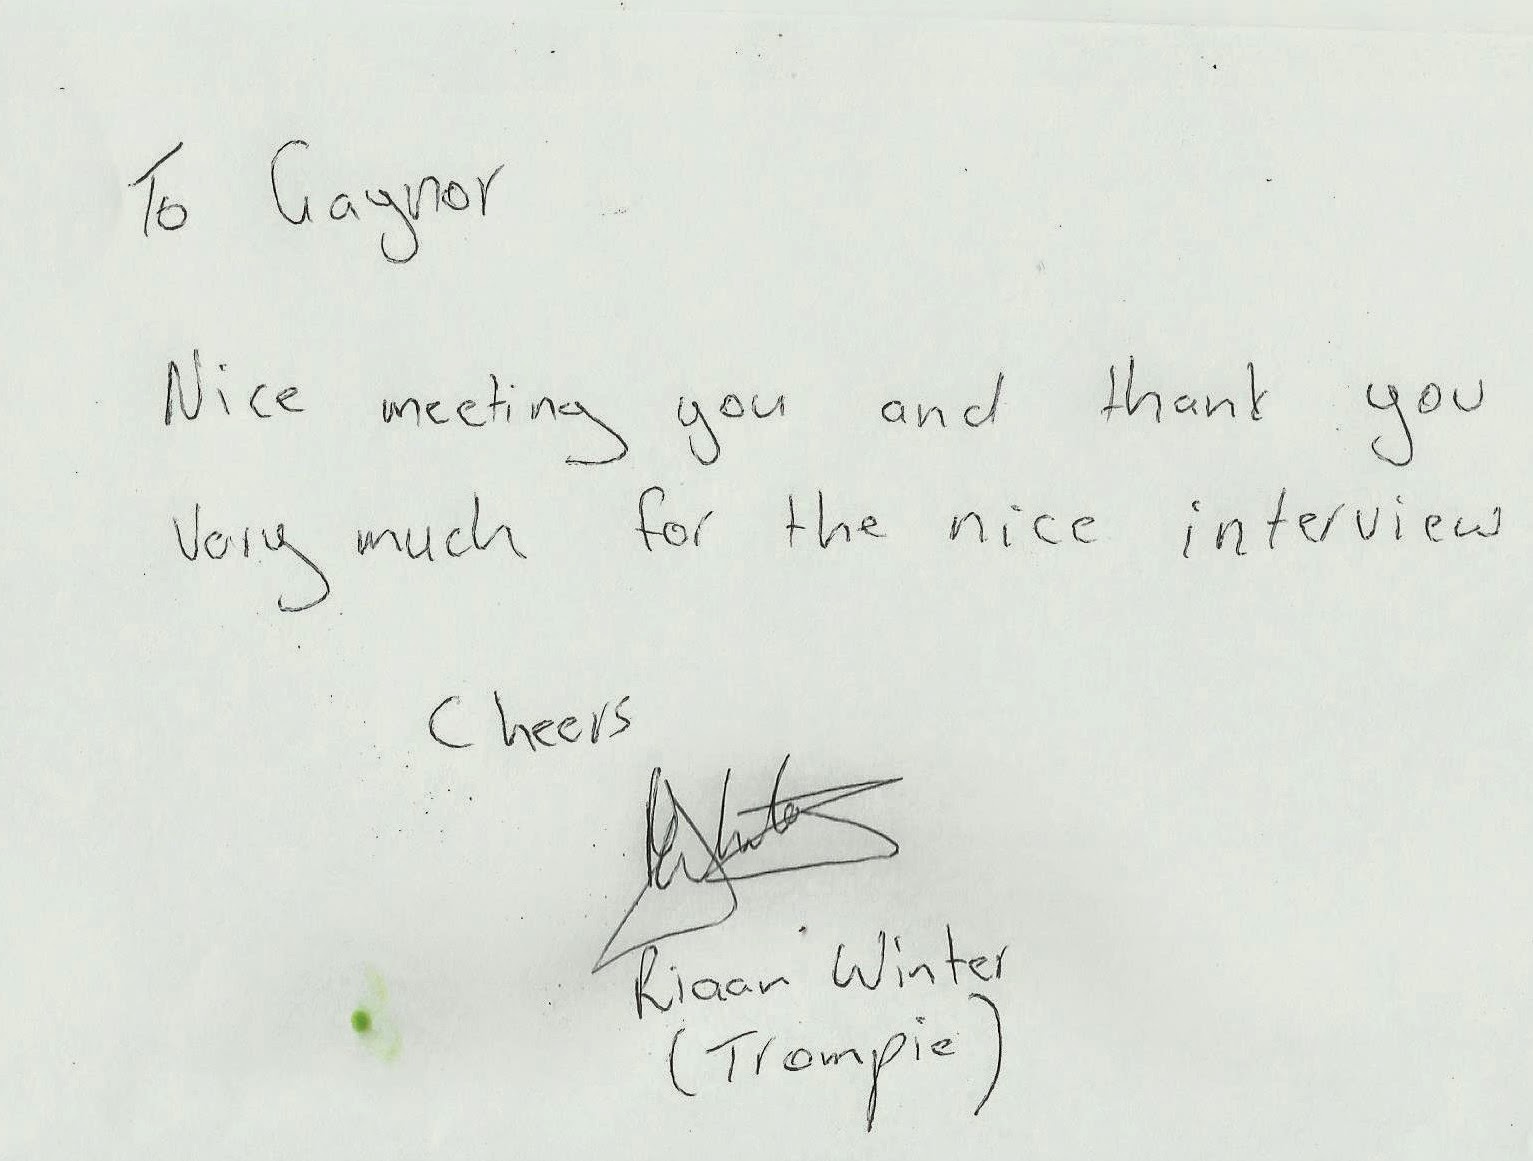 To Gaynor
Nice meeting you and thank you
very much for the nice interview
Cheers
Riaan Winter
(Trompie)